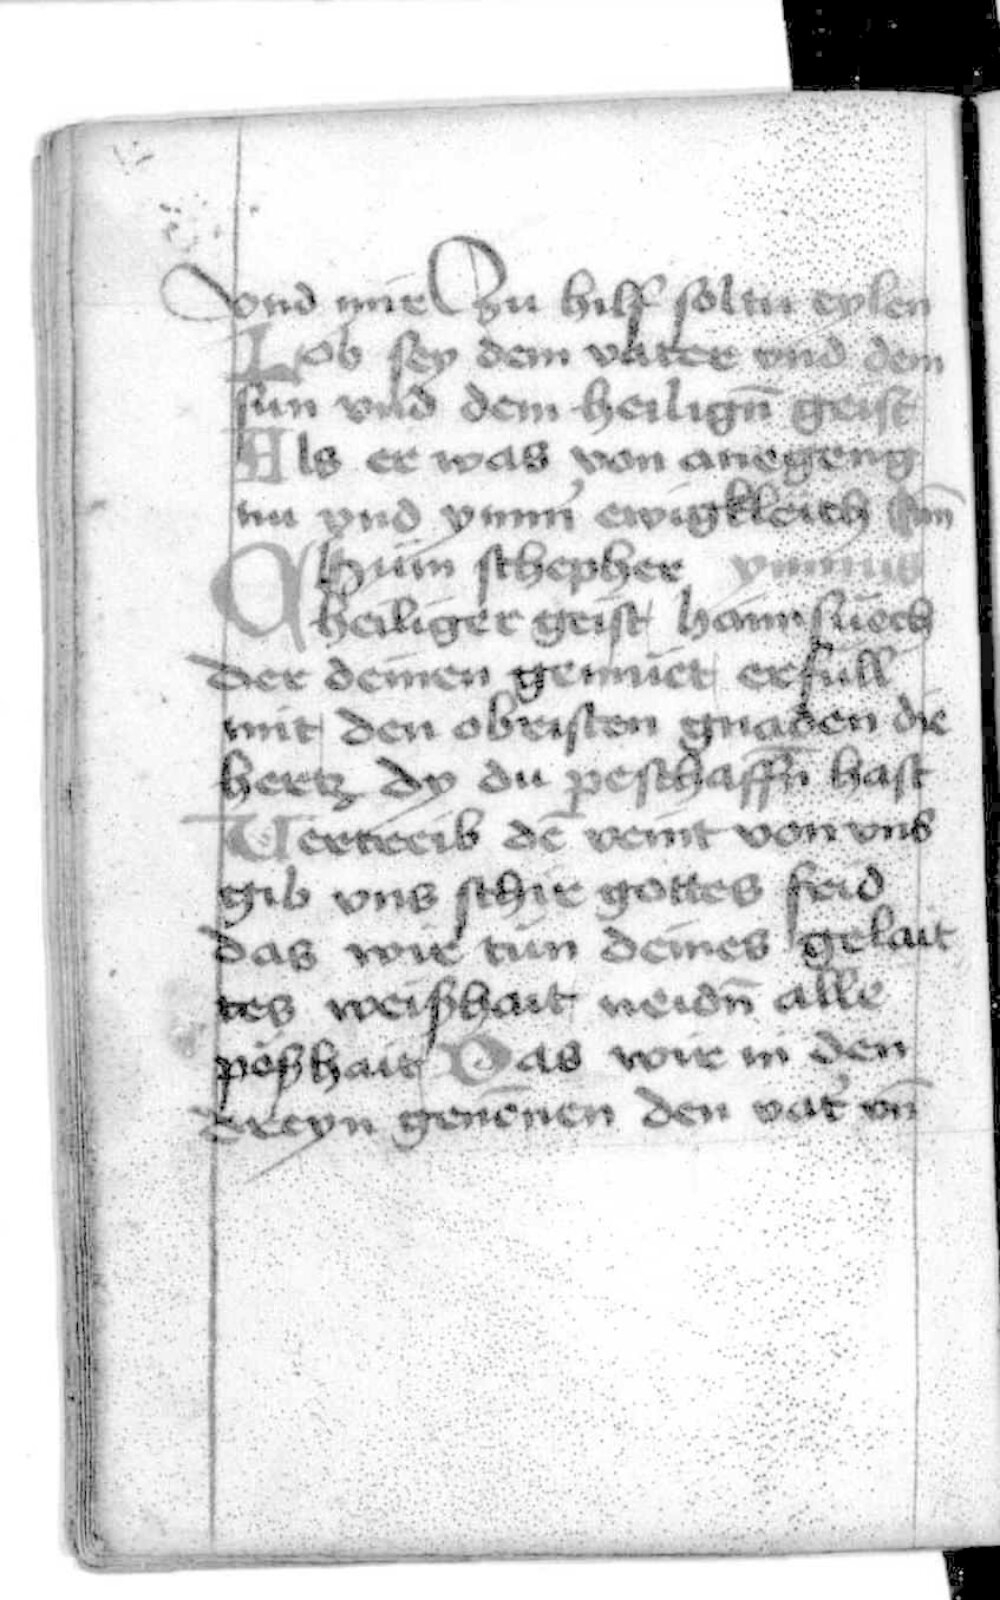 vnd mir Zu hilf soltu eylen
Lob sey dem vater vnd dem
sun vnd dem heilign̄ geist
Als er was von anegeng
nu vnd ymm̄ ewigkleich
Khum schepher ymnus
heiliger geist haimsuech
der deinen gemuet erfull
mit den obristen gnaden die
hertz dy du peschaffn̄ hast
Vertreib dē veint von vns
gib vns schir gottes frid
das wir tun deines gelait
tes weißhait neidn̄ alle
pößhait Das wir in den
dreyn genēnen den vat' vn̄